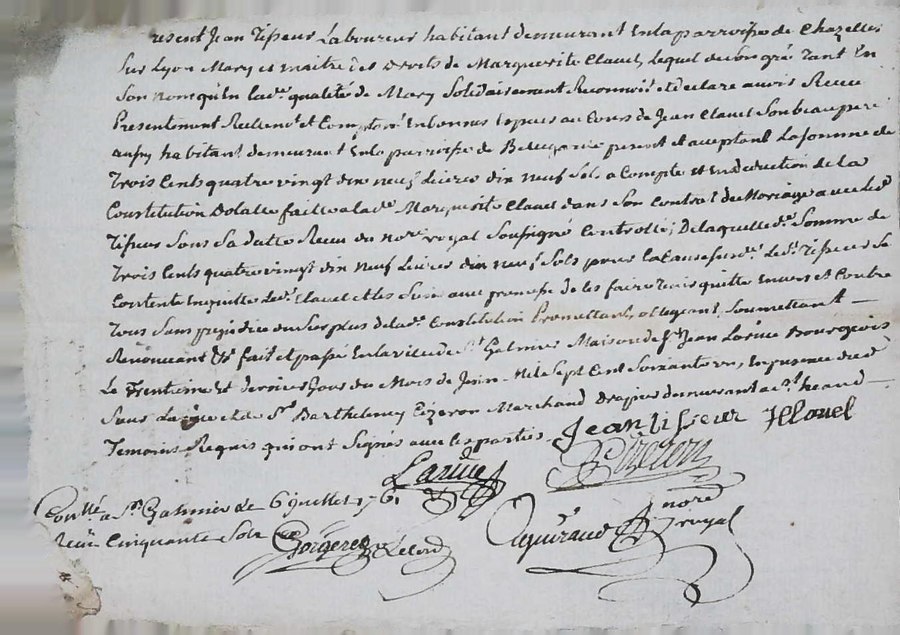 resent Jean Tisseur Laboureur habitant demeurant En la parroisse de Chazelles
Sur Lyon Mary et maitre des droits de Marguerite Clavel, Lequel de son gré tant En
Son nom qu'En lad.e qualité de Mary Solidairement Reconnois et declare avoir Receu
Presentement Reellem.t et Comptan.t En bonnes Espèces au Cours de Jean Clavel Son beaupere
aussy habitan.t demeurant En la parroisse de present et acceptant La somme de
Trois Cents quatre vingt dix neuf Livres dix neuf Sols a Compte et En deduction de La
Constitution Dotalle faitte a lad.e Marguerite Clavel dans Son Contrat de Mariage avec Led.t
Tisseur Sous Sa datte Receu du no.re royal Soussigné Controllé; De laquelle d.e Somme de
Trois Cents quatre vingt dix Neuf Livres dix neuf Sols pour La Cause susd.e Led.t Tisseur Se
Contente En quitte Led.t Clavel et les Siens avec promesse de les faire tenir quitte Envers et Contre
Tous Sans prejudice du Surplus de lad.e Constitution Promettant, obligeant, Soumettant —
Renonceant &.a fait et passé En la ville de S.t Galmier Maison de S.r Jean Larive Bourgeois
Le Trentieme et dernier Jour du Mois de Juin Mil Sept Cent Soixante un, En presence dud.t
Sieur Larive et de S.r Barthelemy Cizeron Marchand drapier demeurant a S.t heand —
Temoins Requis qui ont Signés avec les parties Jean tisseur J Clavel
Larive Cizeron
Con.llé a S.t Galmier le 6 Juillet 1761
Receu Cinquante Sols no.re royal